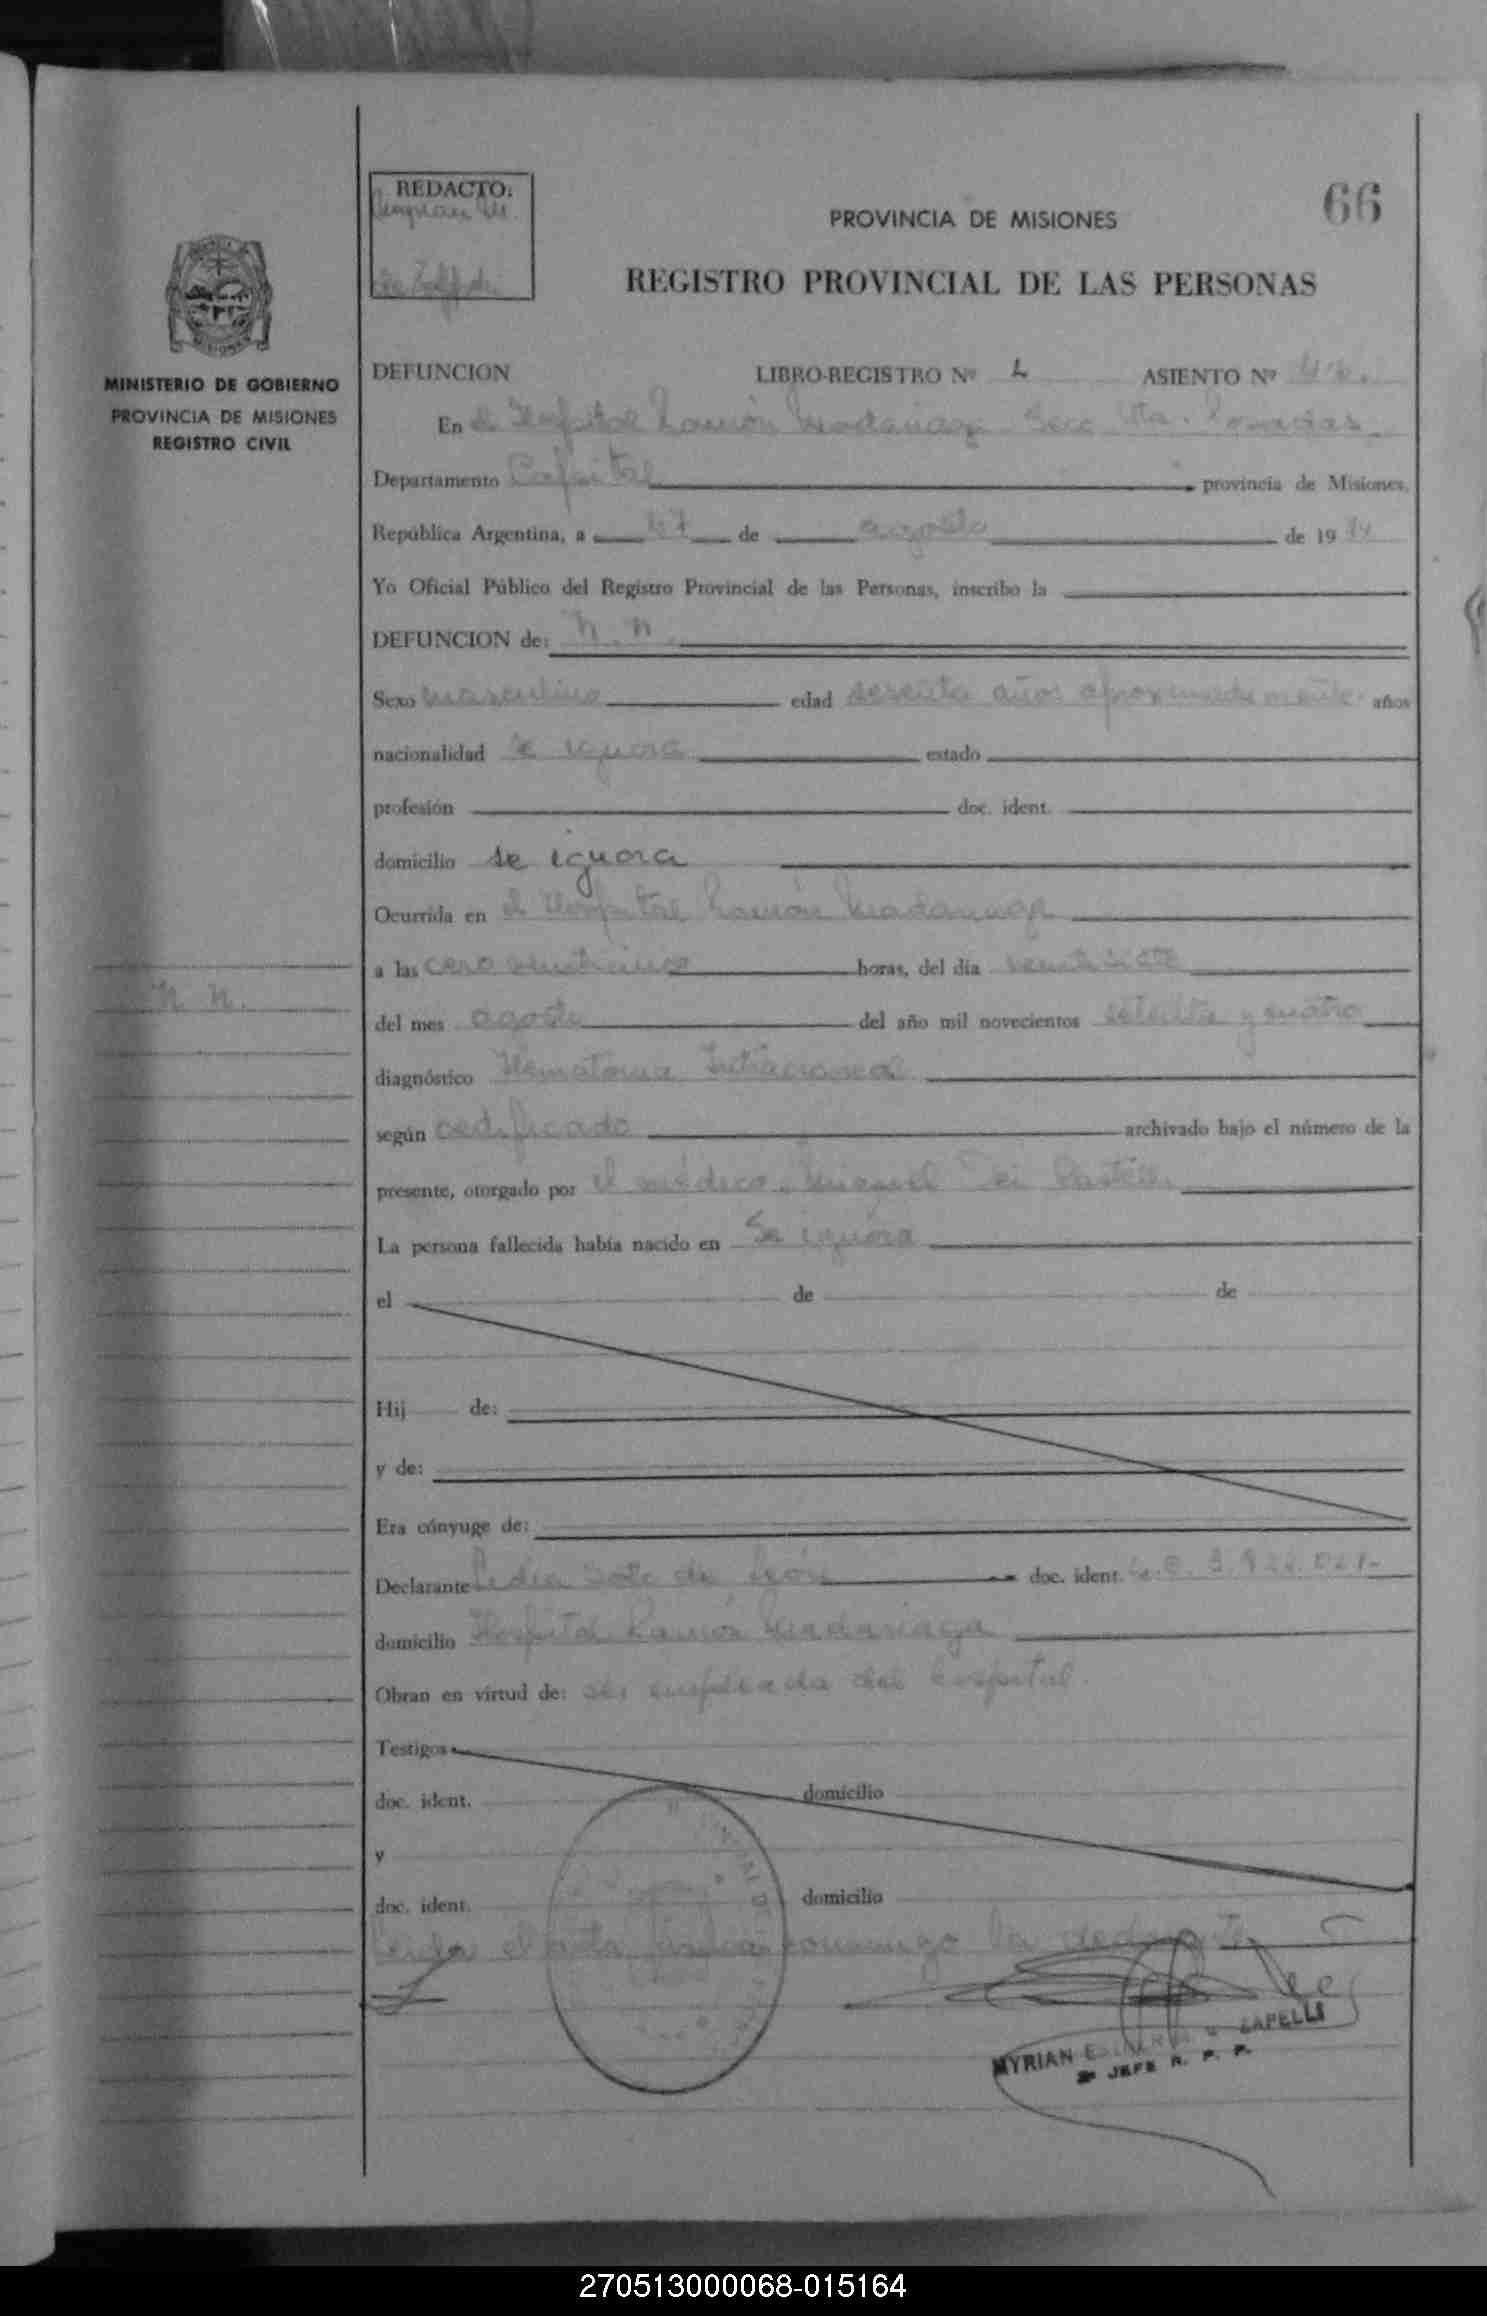 REDACTO:
66
PROVINCIA DE MISIONES
REGISTRO PROVINCIAL DE LAS PERSONAS
MINISTERIO DE GOBIERNO
PROVINCIA DE MISIONES
REGISTRO CIVIL
DEFUNCION LIBRO-REGISTRO Nº ASIENTO Nº
En el Hospital Ramón Madariaga Secc Posadas
Departamento Capital provincia de Misiones,
República Argentina, a 27 de agosto de 1974
Yo Oficial Público del Registro Provincial de las Personas, inscribo la
DEFUNCION de: N. N.
Sexo masculino edad sesenta años aproximadamente años
nacionalidad se ignora estado
profesión doc. ident.
domicilio se ignora
Ocurrida en el Hospital Ramón Madariaga
a las cero veinticinco horas, del día veintisiete
N. N.
del mes agosto del año mil novecientos setenta y cuatro
diagnóstico Hematoma Intracraneal
según certificado archivado bajo el número de la
presente, otorgado por el médico Miguel
La persona fallecida había nacido en Se ignora
el de de
Hij de:
y de:
Era cónyuge de:
Declarante Soto de León doc. ident. L.C.
domicilio Hospital Ramón Madariaga
Obran en virtud de: ser empleada del hospital.
Testigos
doc. ident. domicilio
y
doc. ident. domicilio
Leída el acta firma conmigo la declarante
MYRIAN ZAPELLI
JEFE R. P. P.
270513000068-015164